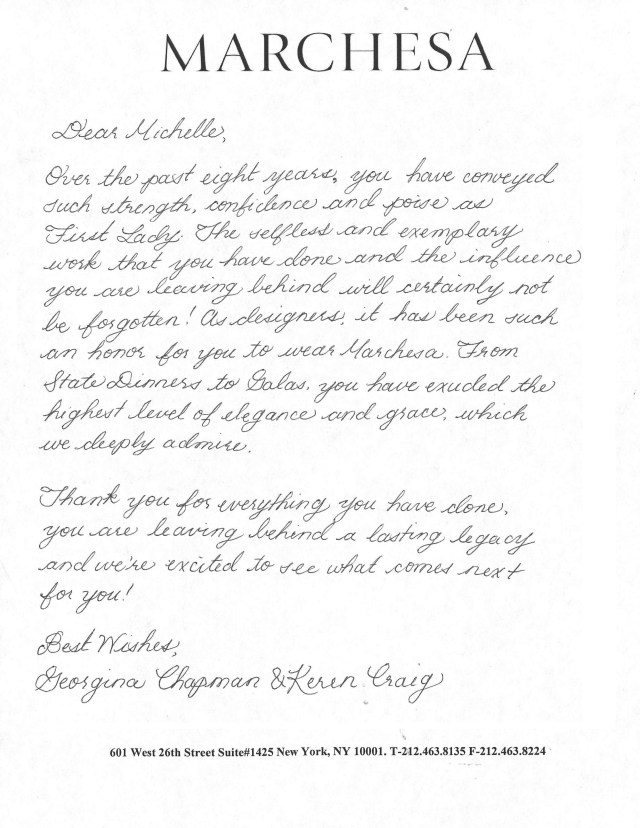 MARCHESA
Dear Michelle,
Over the past eight years, you have conveyed
such strength, confidence and poise as
First Lady. The selfless and exemplary
work that you have done and the influence
you are leaving behind will certainly not
be forgotten! As designers, it has been such
an honor for you to wear Marchesa. From
State Dinners to Galas, you have exuded the
highest level of elegance and grace, which
we deeply admire.
Thank you for everything you have done,
you are leaving behind a lasting legacy
and we're excited to see what comes next
for you!
Best Wishes,
Georgina Chapman & Keren Craig
601 West 26th Street Suite#1425 New York, NY 10001. T-212.463.8135 F-212.463.8224